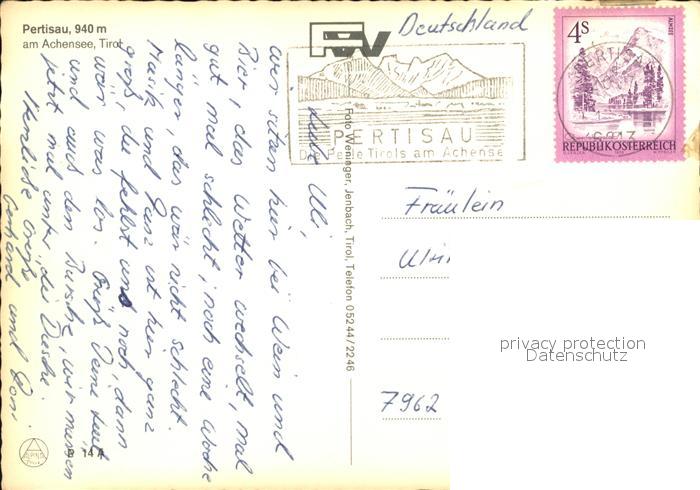 Pertisau, 940 m
am Achensee, Tirol
Deutschland
PERTISAU
Die Perle Tirols am Achensee
4s
ALMSEE
REPUBLIK ÖSTERREICH
Liebe Uli,
wir sitzen hier bei Wein und
Bier, das Wetter wechselt, mal
gut mal schlecht, noch eine Woche
länger, das wär nicht schlecht.
Musik und Tanz ist hier ganz
groß, du fehlst uns noch, dann
wär was los. Grüß Deine Leut
und auch den Bursche, wir müssen
jetzt mal unter die Dusche.
Herzliche Grüße
Gerhard und
Foto Weninger, Jenbach, Tirol, Telefon 05244/2246
Fräulein
7962
privacy protection
Datenschutz
14 A